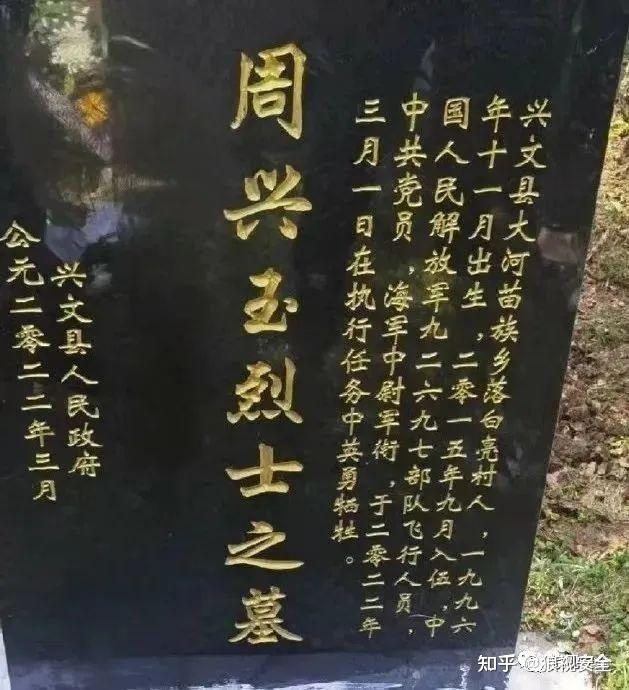 兴文县大河苗族乡落白亮村人，一九九六
年十一月出生，二零一五年九月入伍，中
国人民解放军九二六九七部队飞行人员，
中共党员，海军中尉军衔，于二零二二年
三月一日在执行任务中英勇牺牲。
周兴玉烈士之墓
兴文县人民政府
公元二零二二年三月
知乎 @狼视安全